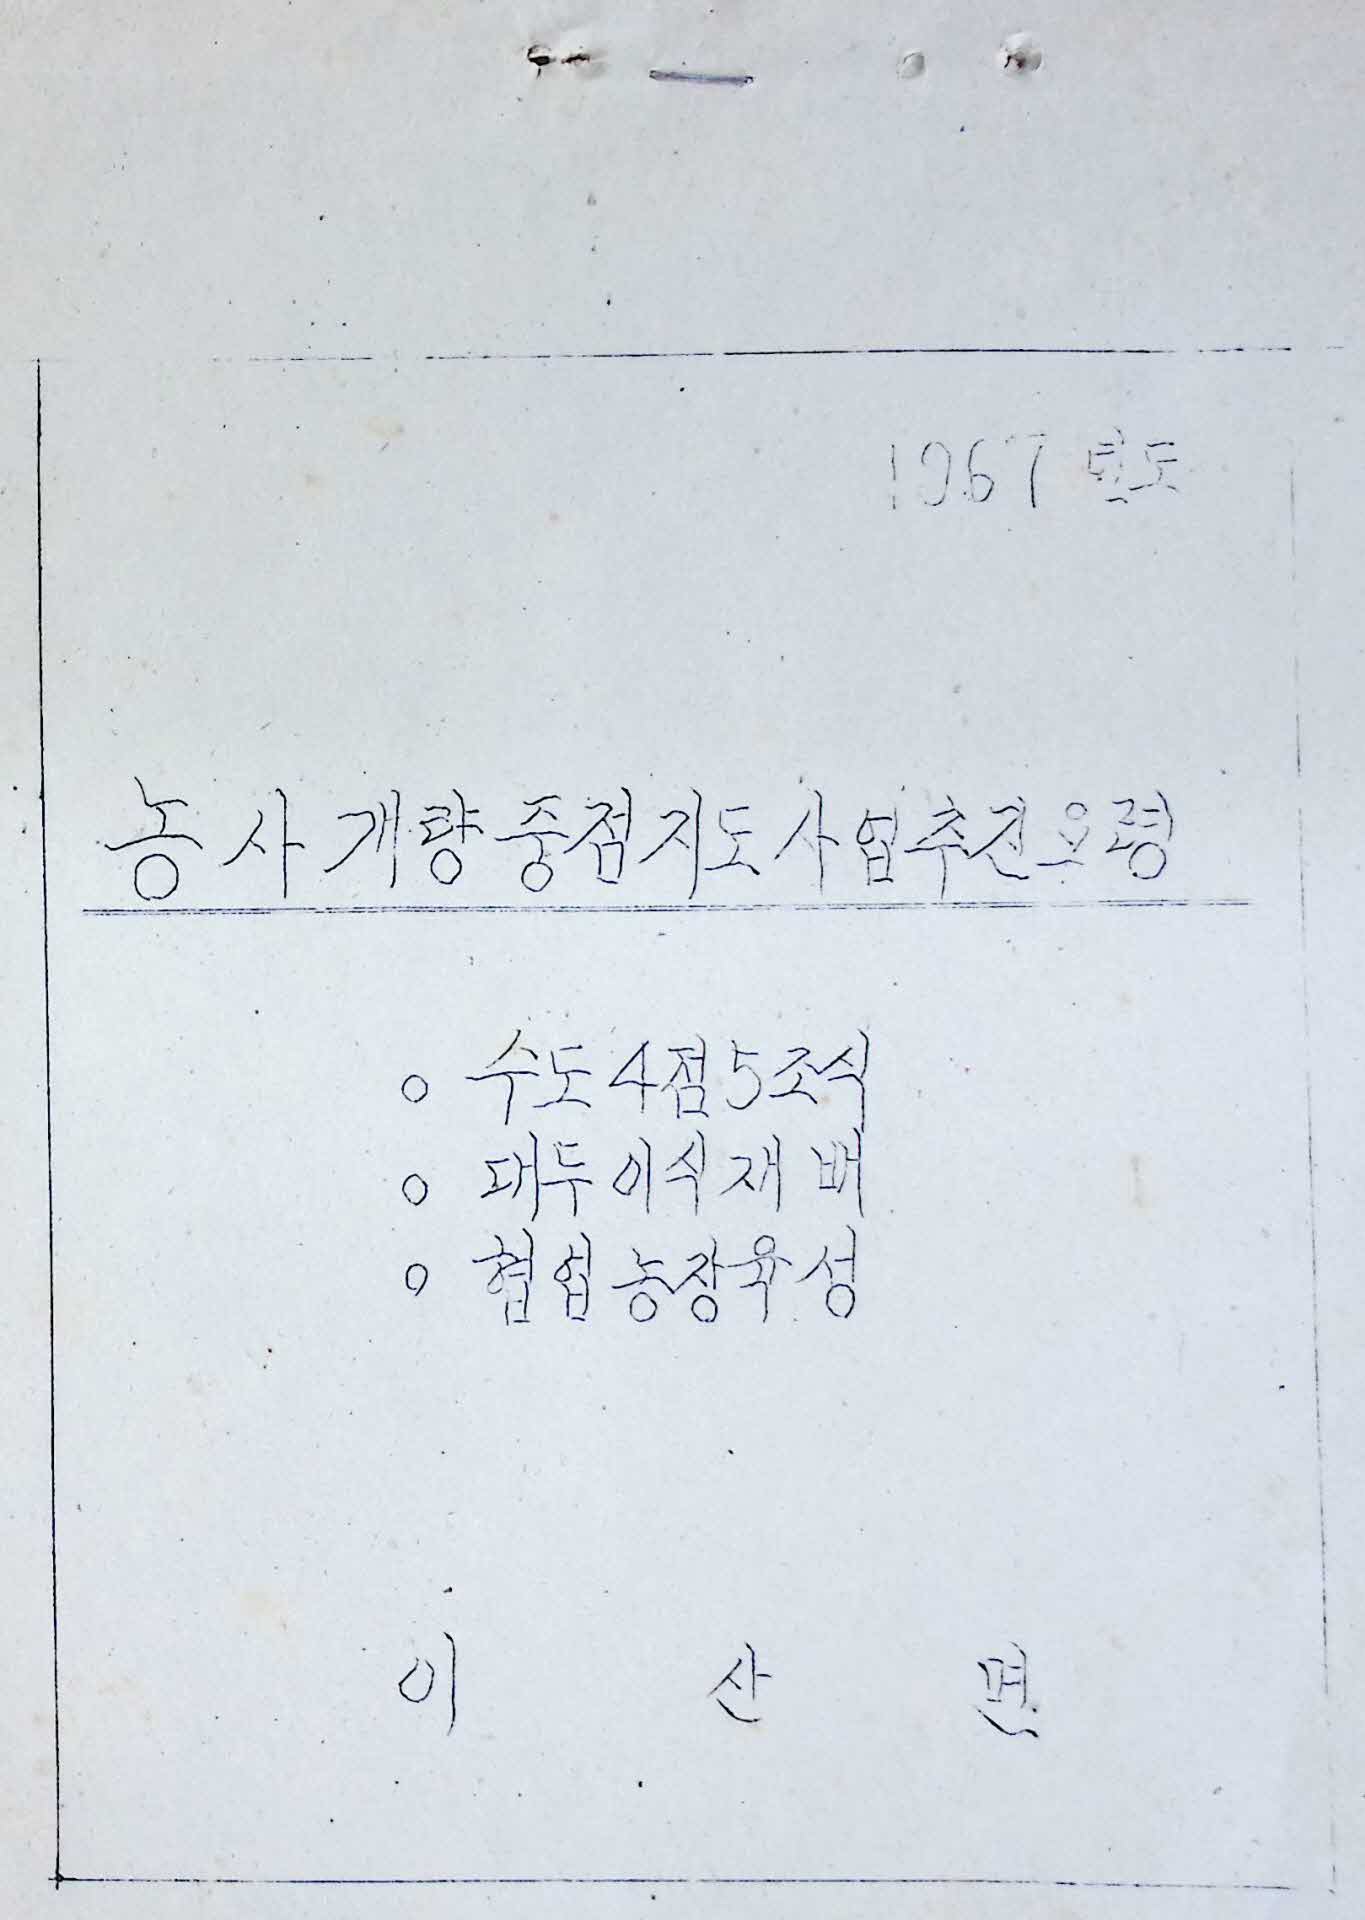 1967 년도
농사개량중점지도사업추진요령
o 수도4점5조식
o 대두이식재배
o 협업농장육성
이 산 면